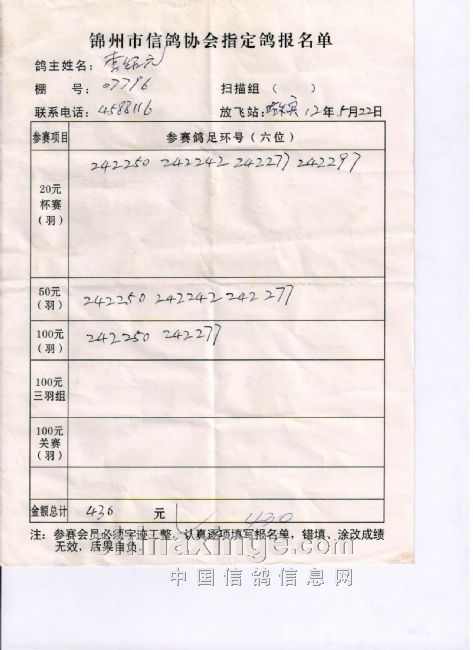 锦州市信鸽协会指定鸽报名单
鸽主姓名：李绍元
棚 号：07796 扫描组（ ）
联系电话：4588116 放飞站：哈尔滨 12年5月22日
参赛项目 参赛鸽足环号（六位）
20元
杯赛
（羽）
242250 242242 242277 242297
50元
（羽）
242250 242242 242277
100元
（羽）
242250 242277
100元
三羽组
100元
关赛
（羽）
金额总计 430 元 430
注：参赛会员必须字迹工整，认真逐项填写报名单，错填、涂改成绩
无效，后果自负。
chinaxinge.com
中国信鸽信息网